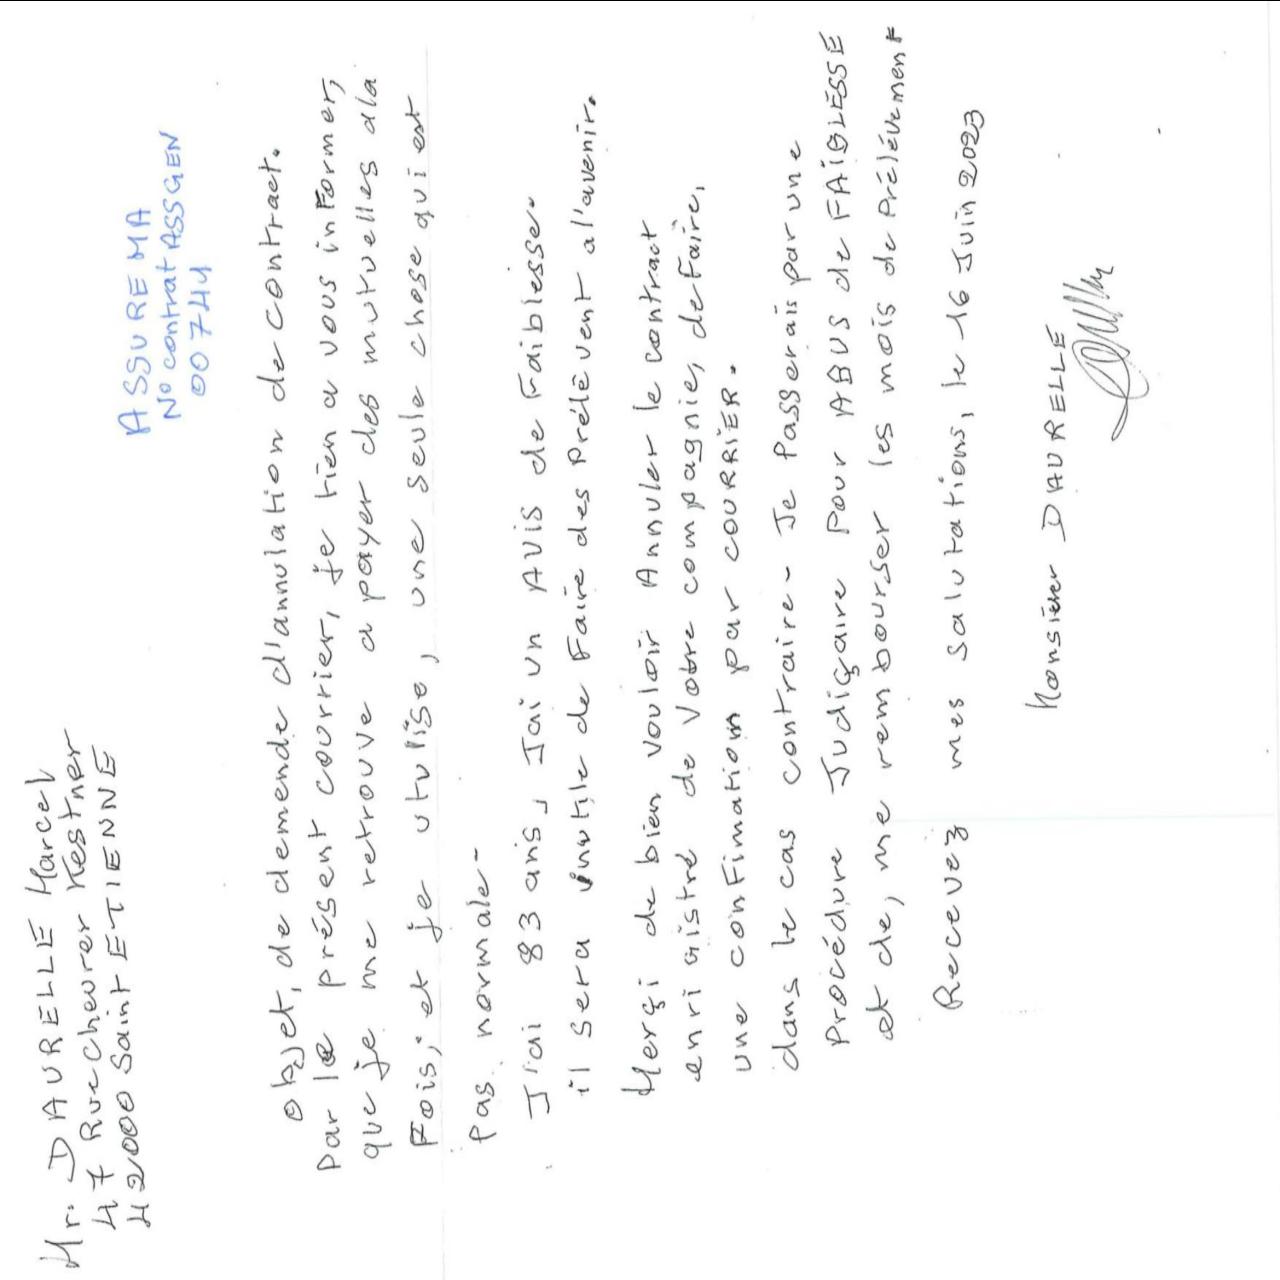 Mr. DAURELLE Marcel
47 Rue Cheurer Kestner
42000 Saint ETIENNE
ASSURE MA
N° contrat ASSGEN
00744
objet, de demende d'annulation de contract.
Par le présent courrier, je tien a vous informer,
que je me retrouve a payer des mutuelles a la
Fois; et je utulise, une seule chose qui est
pas normale-
J'ai 83 ans, J'ai un AVis de Faiblesse.
il sera inutile de Faire des Prélèvent a l'avenir.
Merçi de bien vouloir Annuler le contract
enrigistré de Votre compagnie, de Faire,
une confimation par COURRIER.
dans le cas contraire- Je Passerais par une
Procédure Judiçaire Pour ABUS de FAIBLESSE
et de, me rembourser les mois de Prélévement
Recevez mes salutations, le 16 Juin 2023
Monsieur DAURELLE